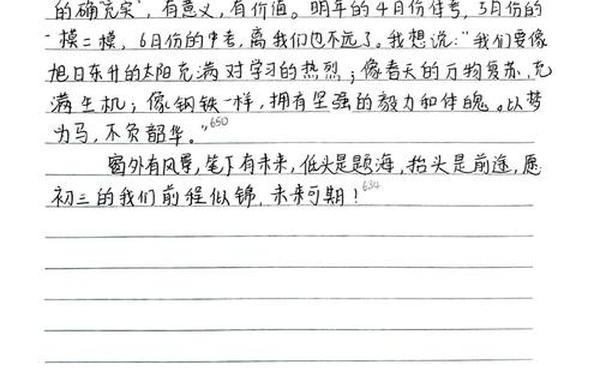 的确充实”，有意义，有价值。明年的4月份体考，5月份的
一模二模，6月份的中考，离我们也不远了。我想说：“我们要像
旭日东升的太阳充满对学习的热烈；像春天的万物复苏，充
满生机；像钢铁一样，拥有坚强的毅力和体魄。以梦
为马，不负韶华。”650
窗外有风景，笔下有未来，低头是题海，抬头是前途，愿
初三的我们前程似锦，未来可期！634